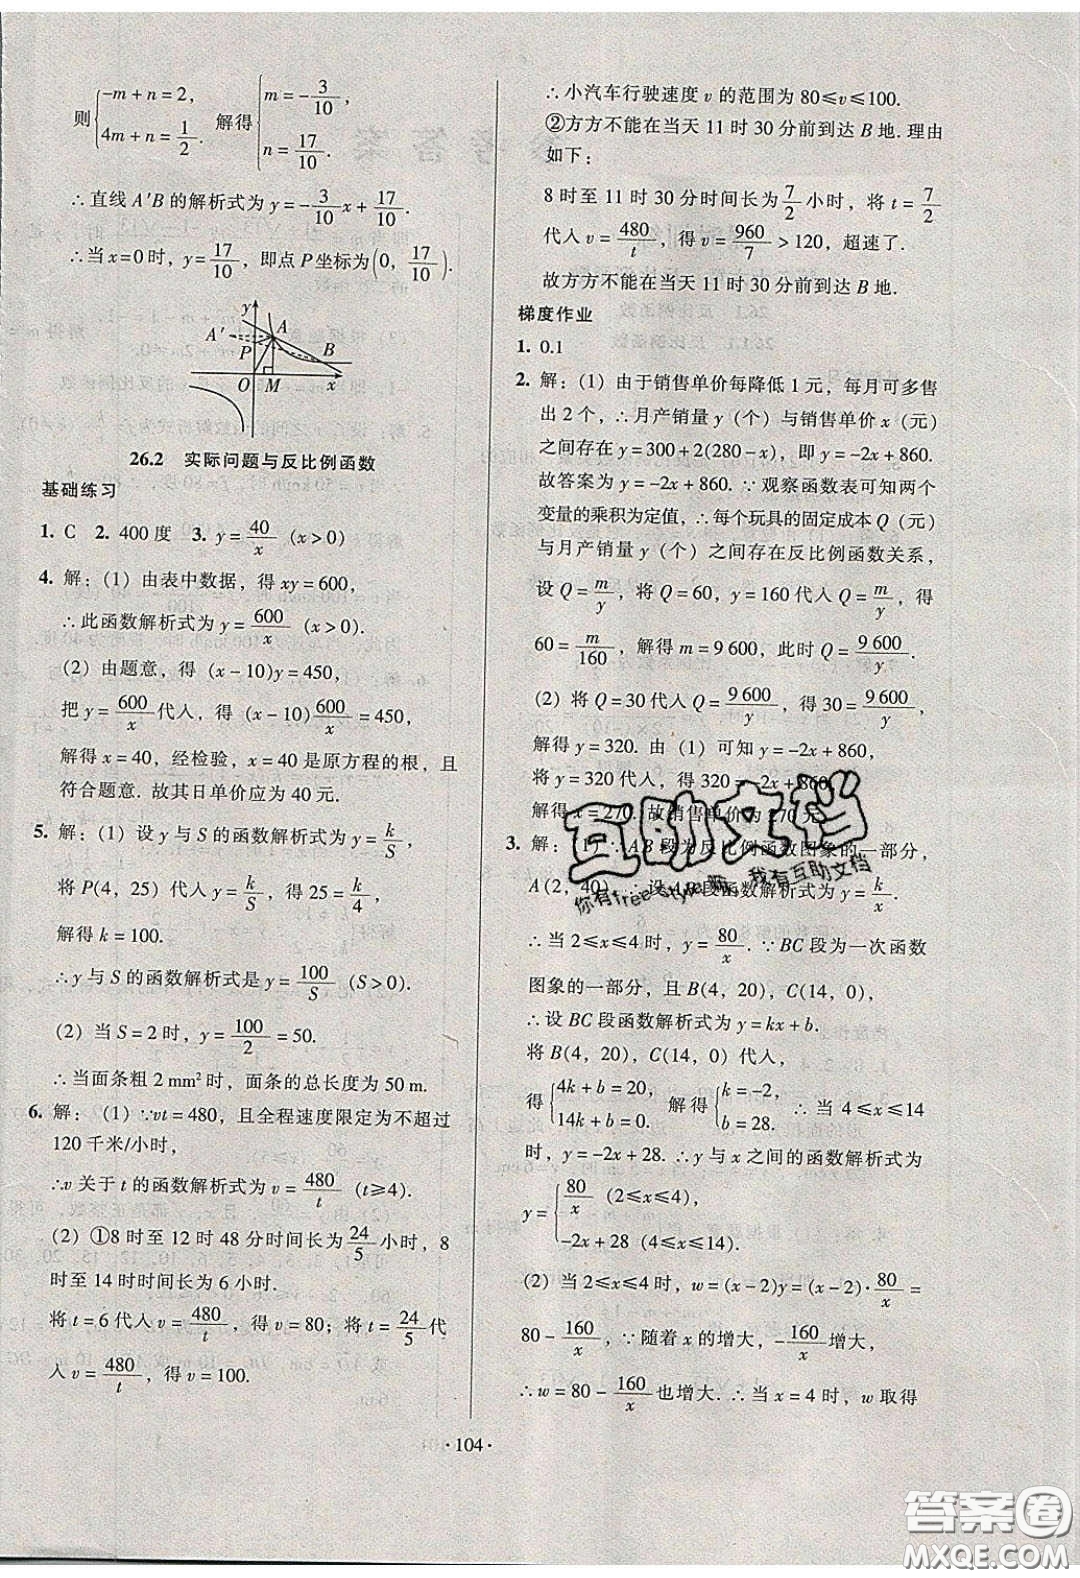 则{-m+n=2, 4m+n=1/2. 解得{m=-3/10, n=17/10.
∴直线A′B的解析式为y=-3/10x+17/10.
∴当x=0时，y=17/10，即点P坐标为(0，17/10).
y
A′
A
P
B
O
M
x
26.2 实际问题与反比例函数
基础练习
1. C 2. 400度 3. y=40/x (x>0)
4. 解：(1) 由表中数据，得xy=600,
∴此函数解析式为y=600/x (x>0).
(2) 由题意，得 (x-10)y=450,
把y=600/x代入，得 (x-10)600/x=450,
解得x=40，经检验，x=40是原方程的根，且
符合题意. 故其日单价应为40元.
5. 解：(1) 设y与S的函数解析式为y=k/S,
将P(4，25) 代入解析式，得25=k/4,
解得k=100.
∴y与S的函数解析式是y=100/S (S>0).
(2) 当S=2时，y=100/2=50.
∴当面条粗2 mm²时，面条的总长度为50 m.
6. 解：(1) ∵vt=480，且全程速度限定为不超过
120千米/小时，
∴v关于t的函数解析式为v=480/t (t≥4).
(2) ①8时至12时48分时间长为24/5小时，8
时至14时时间长为6小时.
将t=6代入v=480/t，得v=80；将t=24/5代
入v=480/t，得v=100.
∴小汽车行驶速度v的范围为80≤v≤100.
②方方不能在当天11时30分前到达B地. 理由
如下：
8时至11时30分时间长为7/2小时，将t=7/2
代入v=480/t，得v=960/7>120，超速了.
故方方不能在当天11时30分前到达B地.
梯度作业
1. 0.1
2. 解：(1) 由于销售单价每降低1元，每月可多售
出2个，∴月产销量y（个）与销售单价x（元）
之间存在y=300+2(280-x)，即y=-2x+860.
故答案为y=-2x+860. ∵观察函数表可知两个
变量的乘积为定值，∴每个玩具的固定成本Q（元）
与月产销量y（个）之间存在反比例函数关系，
设Q=m/y，将Q=60，y=160代入Q=m/y，得
60=m/160，解得m=9 600，此时Q=9 600/y.
(2) 将Q=30代入Q=9 600/y，得30=9 600/y,
解得y=320. 由 (1) 可知y=-2x+860,
将y=320代入，得320=-2x+860,
解得x=270. 故销售单价为270元.
3. 解：(1) ∵AB段为反比例函数图象的一部分，
A(2，40)，∴设AB段函数解析式为y=k/x.
∴当2≤x≤4时，y=80/x. ∵BC段为一次函数
图象的一部分，且B(4，20)，C(14，0)，
∴设BC段函数解析式为y=kx+b.
将B(4，20)，C(14，0) 代入，
得{4k+b=20, 14k+b=0. 解得{k=-2, b=28. ∴当4≤x≤14
时，y=-2x+28. ∴y与x之间的函数解析式为
y={80/x (2≤x≤4), -2x+28 (4<x≤14).
(2) 当2≤x≤4时，w=(x-2)y=(x-2)·80/x=
80-160/x，∵随着x的增大，-160/x增大，
∴w=80-160/x也增大. ∴当x=4时，w取得
·104·
互助文档
你有free-style嘛，我有互助文档
答案圈
MXQE.COM